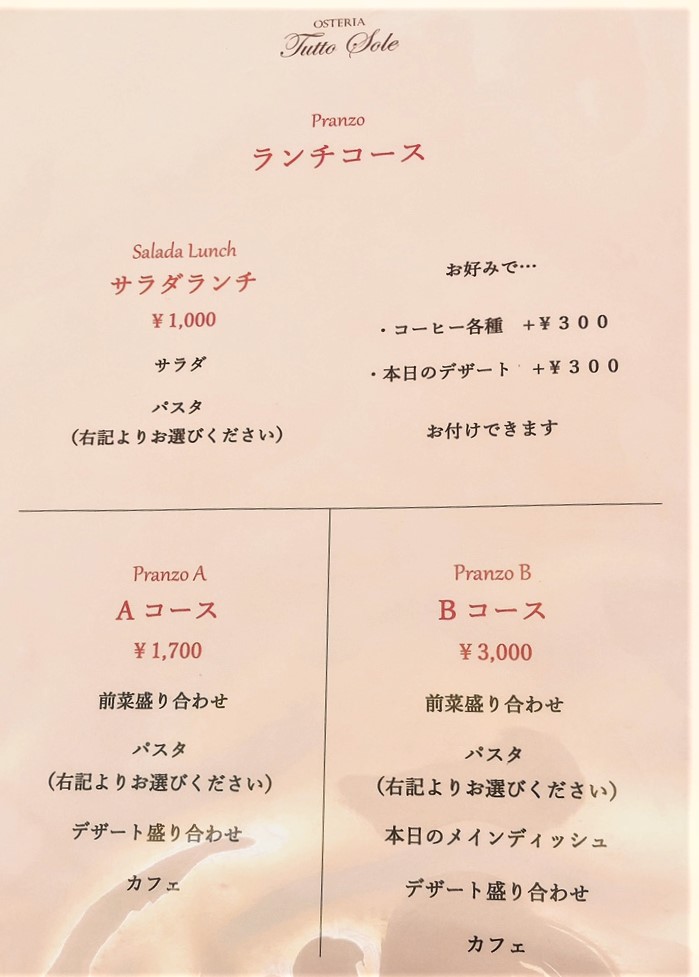 OSTERIA
Tutto Sole
Pranzo
ランチコース
Salada Lunch
サラダランチ
¥1,000
サラダ
パスタ
(右記よりお選びください)
お好みで…
・コーヒー各種　+¥３００
・本日のデザート　+¥３００
お付けできます
Pranzo A
A コース
¥1,700
前菜盛り合わせ
パスタ
(右記よりお選びください)
デザート盛り合わせ
カフェ
Pranzo B
B コース
¥3,000
前菜盛り合わせ
パスタ
(右記よりお選びください)
本日のメインディッシュ
デザート盛り合わせ
カフェ